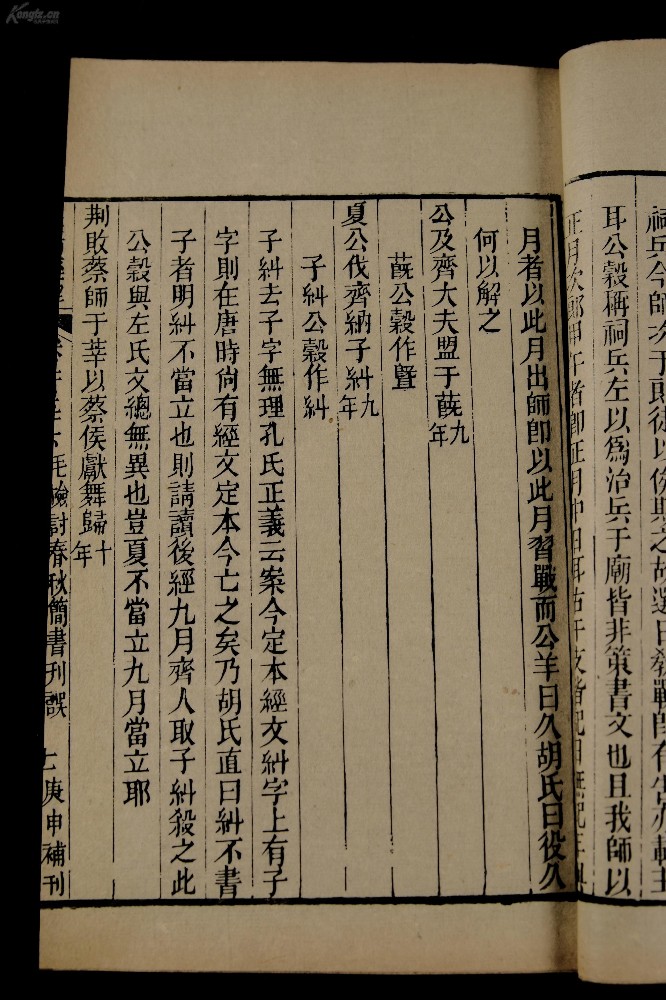 祠兵今師次于
耳公穀稱祠兵左以爲治兵于廟皆非策書文也且我師以
正月次郎甲午者卽正月中日耳古干支皆紀日無紀年
月者以此月出師卽以此月習戰而公羊曰久胡氏曰役久
何以解之
公及齊大夫盟于蔇九年
蔇公穀作暨
夏公伐齊納子糾九年
子糾公穀作糾
子糾去子字無理孔氏正義云案今定本經文糾字上有子
字則在唐時尙有經文定本今亡之矣乃胡氏直曰糾不書
子者明糾不當立也則請讀後經九月齊人取子糾殺之此
公穀與左氏文總無異也豈夏不當立九月當立耶
荆敗蔡師于莘以蔡侯獻舞歸十年
毛檢討春秋簡書刊誤 七 庚申補刊
Kongfz.cn